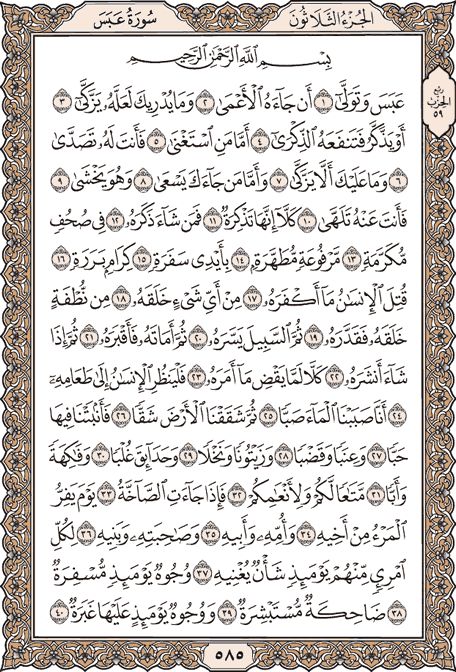 الجُزْءُ الثَّلَاثُونَ
سُورَةُ عَبَسَ
بِسْمِ اللَّهِ الرَّحْمَٰنِ الرَّحِيمِ
ربع
الحزب
٥٩
عَبَسَ وَتَوَلَّىٰٓ ١ أَن جَآءَهُ ٱلْأَعْمَىٰ ٢ وَمَا يُدْرِيكَ لَعَلَّهُۥ يَزَّكَّىٰٓ ٣
أَوْ يَذَّكَّرُ فَتَنفَعَهُ ٱلذِّكْرَىٰٓ ٤ أَمَّا مَنِ ٱسْتَغْنَىٰ ٥ فَأَنتَ لَهُۥ تَصَدَّىٰ
٦ وَمَا عَلَيْكَ أَلَّا يَزَّكَّىٰ ٧ وَأَمَّا مَن جَآءَكَ يَسْعَىٰ ٨ وَهُوَ يَخْشَىٰ ٩
فَأَنتَ عَنْهُ تَلَهَّىٰ ١٠ كَلَّآ إِنَّهَا تَذْكِرَةٌ ١١ فَمَن شَآءَ ذَكَرَهُۥ ١٢ فِى صُحُفٍ
مُّكَرَّمَةٍ ١٣ مَّرْفُوعَةٍ مُّطَهَّرَةٍۭ ١٤ بِأَيْدِى سَفَرَةٍ ١٥ كِرَامٍۭ بَرَرَةٍ ١٦
قُتِلَ ٱلْإِنسَٰنُ مَآ أَكْفَرَهُۥ ١٧ مِنْ أَىِّ شَىْءٍ خَلَقَهُۥ ١٨ مِن نُّطْفَةٍ
خَلَقَهُۥ فَقَدَّرَهُۥ ١٩ ثُمَّ ٱلسَّبِيلَ يَسَّرَهُۥ ٢٠ ثُمَّ أَمَاتَهُۥ فَأَقْبَرَهُۥ ٢١ ثُمَّ إِذَا
شَآءَ أَنشَرَهُۥ ٢٢ كَلَّا لَمَّا يَقْضِ مَآ أَمَرَهُۥ ٢٣ فَلْيَنظُرِ ٱلْإِنسَٰنُ إِلَىٰ طَعَامِهِۦٓ
٢٤ أَنَّا صَبَبْنَا ٱلْمَآءَ صَبًّا ٢٥ ثُمَّ شَقَقْنَا ٱلْأَرْضَ شَقًّا ٢٦ فَأَنۢبَتْنَا فِيهَا
حَبًّا ٢٧ وَعِنَبًا وَقَضْبًا ٢٨ وَزَيْتُونًا وَنَخْلًا ٢٩ وَحَدَآئِقَ غُلْبًا ٣٠ وَفَٰكِهَةً
وَأَبًّا ٣١ مَّتَٰعًا لَّكُمْ وَلِأَنْعَٰمِكُمْ ٣٢ فَإِذَا جَآءَتِ ٱلصَّآخَّةُ ٣٣ يَوْمَ يَفِرُّ
ٱلْمَرْءُ مِنْ أَخِيهِ ٣٤ وَأُمِّهِۦ وَأَبِيهِ ٣٥ وَصَٰحِبَتِهِۦ وَبَنِيهِ ٣٦ لِكُلِّ
ٱمْرِئٍ مِّنْهُمْ يَوْمَئِذٍ شَأْنٌ يُغْنِيهِ ٣٧ وُجُوهٌ يَوْمَئِذٍ مُّسْفِرَةٌ
٣٨ ضَاحِكَةٌ مُّسْتَبْشِرَةٌ ٣٩ وَوُجُوهٌ يَوْمَئِذٍ عَلَيْهَا غَبَرَةٌ ٤٠
٥٨٥